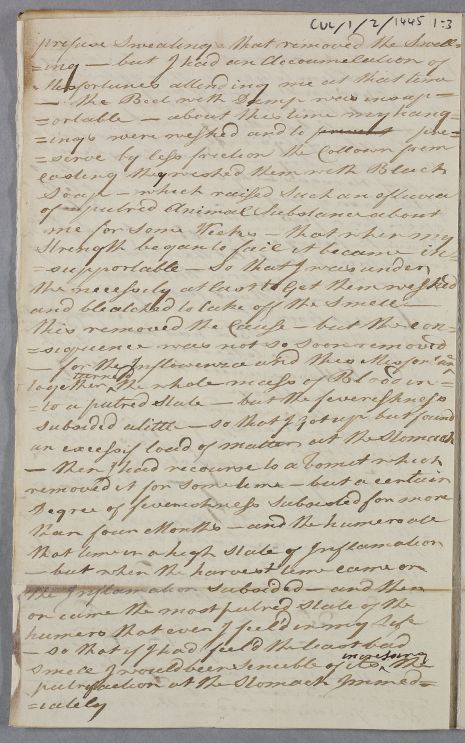 CUL/1/2/1445 1-3
profuse Sweating & that removed the Swell=
=ing - but I had an Accoumelation of
Misfortunes attending me at that time
- the Bed with Damp was insup=
=ortable - about this time my hang=
=ings were weshed and to prevent pre=
=serve by less friction the Collours from
they weshed them with Black
Soap - which raised such an efluvia
of putred Animal Substance about
me for some Weeks - that when my
Strength began to fail it became in=
=supportable - so that I was under
the necessity at last to Get them weshed
and bleatched to take off the Smell -
this removed the Cause - but the con=
=sequence was not so soon removed
- for the Inflowenza and these Misfor'
together turned the whole mass of Blood in=
=to a putred State - but the feverishness
subsided a little - so that I got up but found
an excessif load of matter at the Stomach
- then I had recourse to a Vomet which
removed it for some time - but a certain
Degree of feverishness subsisted for more
than four Months - and the humers at
that time in a high State of Inflamation
- but when the harvest time came on
the Inflamation subsided - and then
on came the most putred State of the
humers that ever I feeld in my Life
- so that if I had feeld the least bad
smell I would been sencible of its increasing the
putryfaction at the Stomach Immed=
=iately